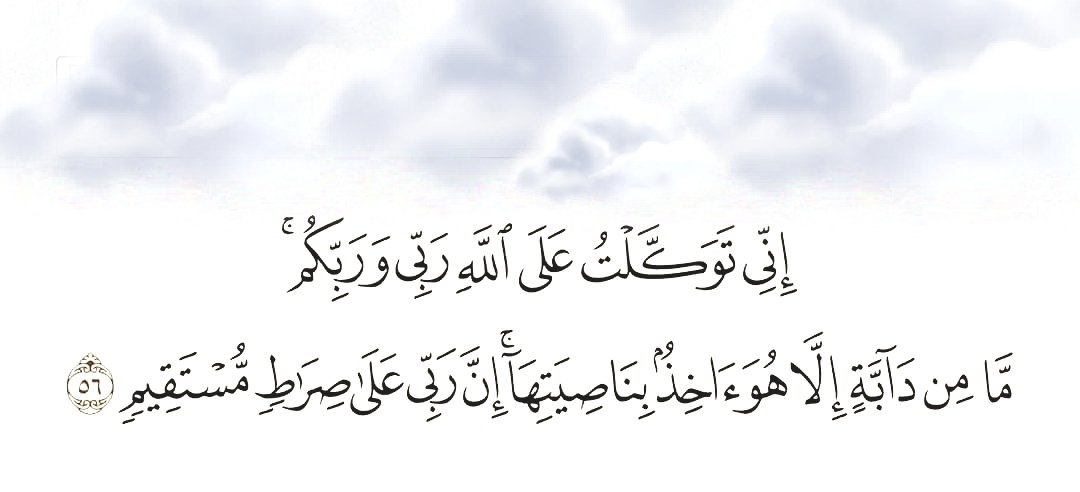 إِنِّي تَوَكَّلْتُ عَلَى ٱللَّهِ رَبِّي وَرَبِّكُمۚ
مَّا مِن دَآبَّةٍ إِلَّا هُوَ ءَاخِذُۢ بِنَاصِيَتِهَآۚ إِنَّ رَبِّي عَلَىٰ صِرَٰطٖ مُّسۡتَقِيمٖ ٥٦